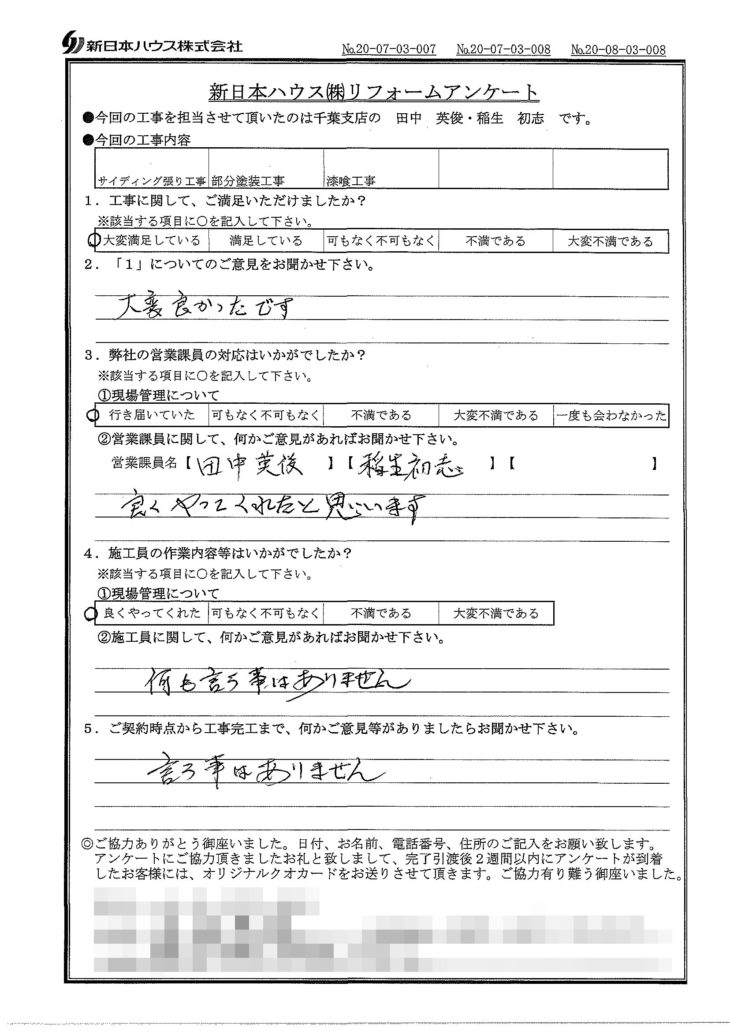 新日本ハウス株式会社
No.20-07-03-007 No.20-07-03-008 No.20-08-03-008
新日本ハウス㈱リフォームアンケート
●今回の工事を担当させて頂いたのは千葉支店の 田中 英俊・稲生 初志 です。
●今回の工事内容
サイディング張り工事 部分塗装工事 漆喰工事
1．工事に関して、ご満足いただけましたか？
※該当する項目に○を記入して下さい。
○大変満足している 満足している 可もなく不可もなく 不満である 大変不満である
2．「1」についてのご意見をお聞かせ下さい。
大変良かったです
3．弊社の営業課員の対応はいかがでしたか？
※該当する項目に○を記入して下さい。
①現場管理について
○行き届いていた 可もなく不可もなく 不満である 大変不満である 一度も会わなかった
②営業課員に関して、何かご意見があればお聞かせ下さい。
営業課員名【田中英俊 】【稲生初志 】【 】
良くやってくれたと思いいます
4．施工員の作業内容等はいかがでしたか？
※該当する項目に○を記入して下さい。
①現場管理について
○良くやってくれた 可もなく不可もなく 不満である 大変不満である
②施工員に関して、何かご意見があればお聞かせ下さい。
何も言う事はありません
5．ご契約時点から工事完工まで、何かご意見等がありましたらお聞かせ下さい。
言う事はありません
◎ご協力ありがとう御座いました。日付、お名前、電話番号、住所のご記入をお願い致します。
アンケートにご協力頂きましたお礼と致しまして、完了引渡後２週間以内にアンケートが到着
したお客様には、オリジナルクオカードをお送りさせて頂きます。ご協力有り難う御座いました。